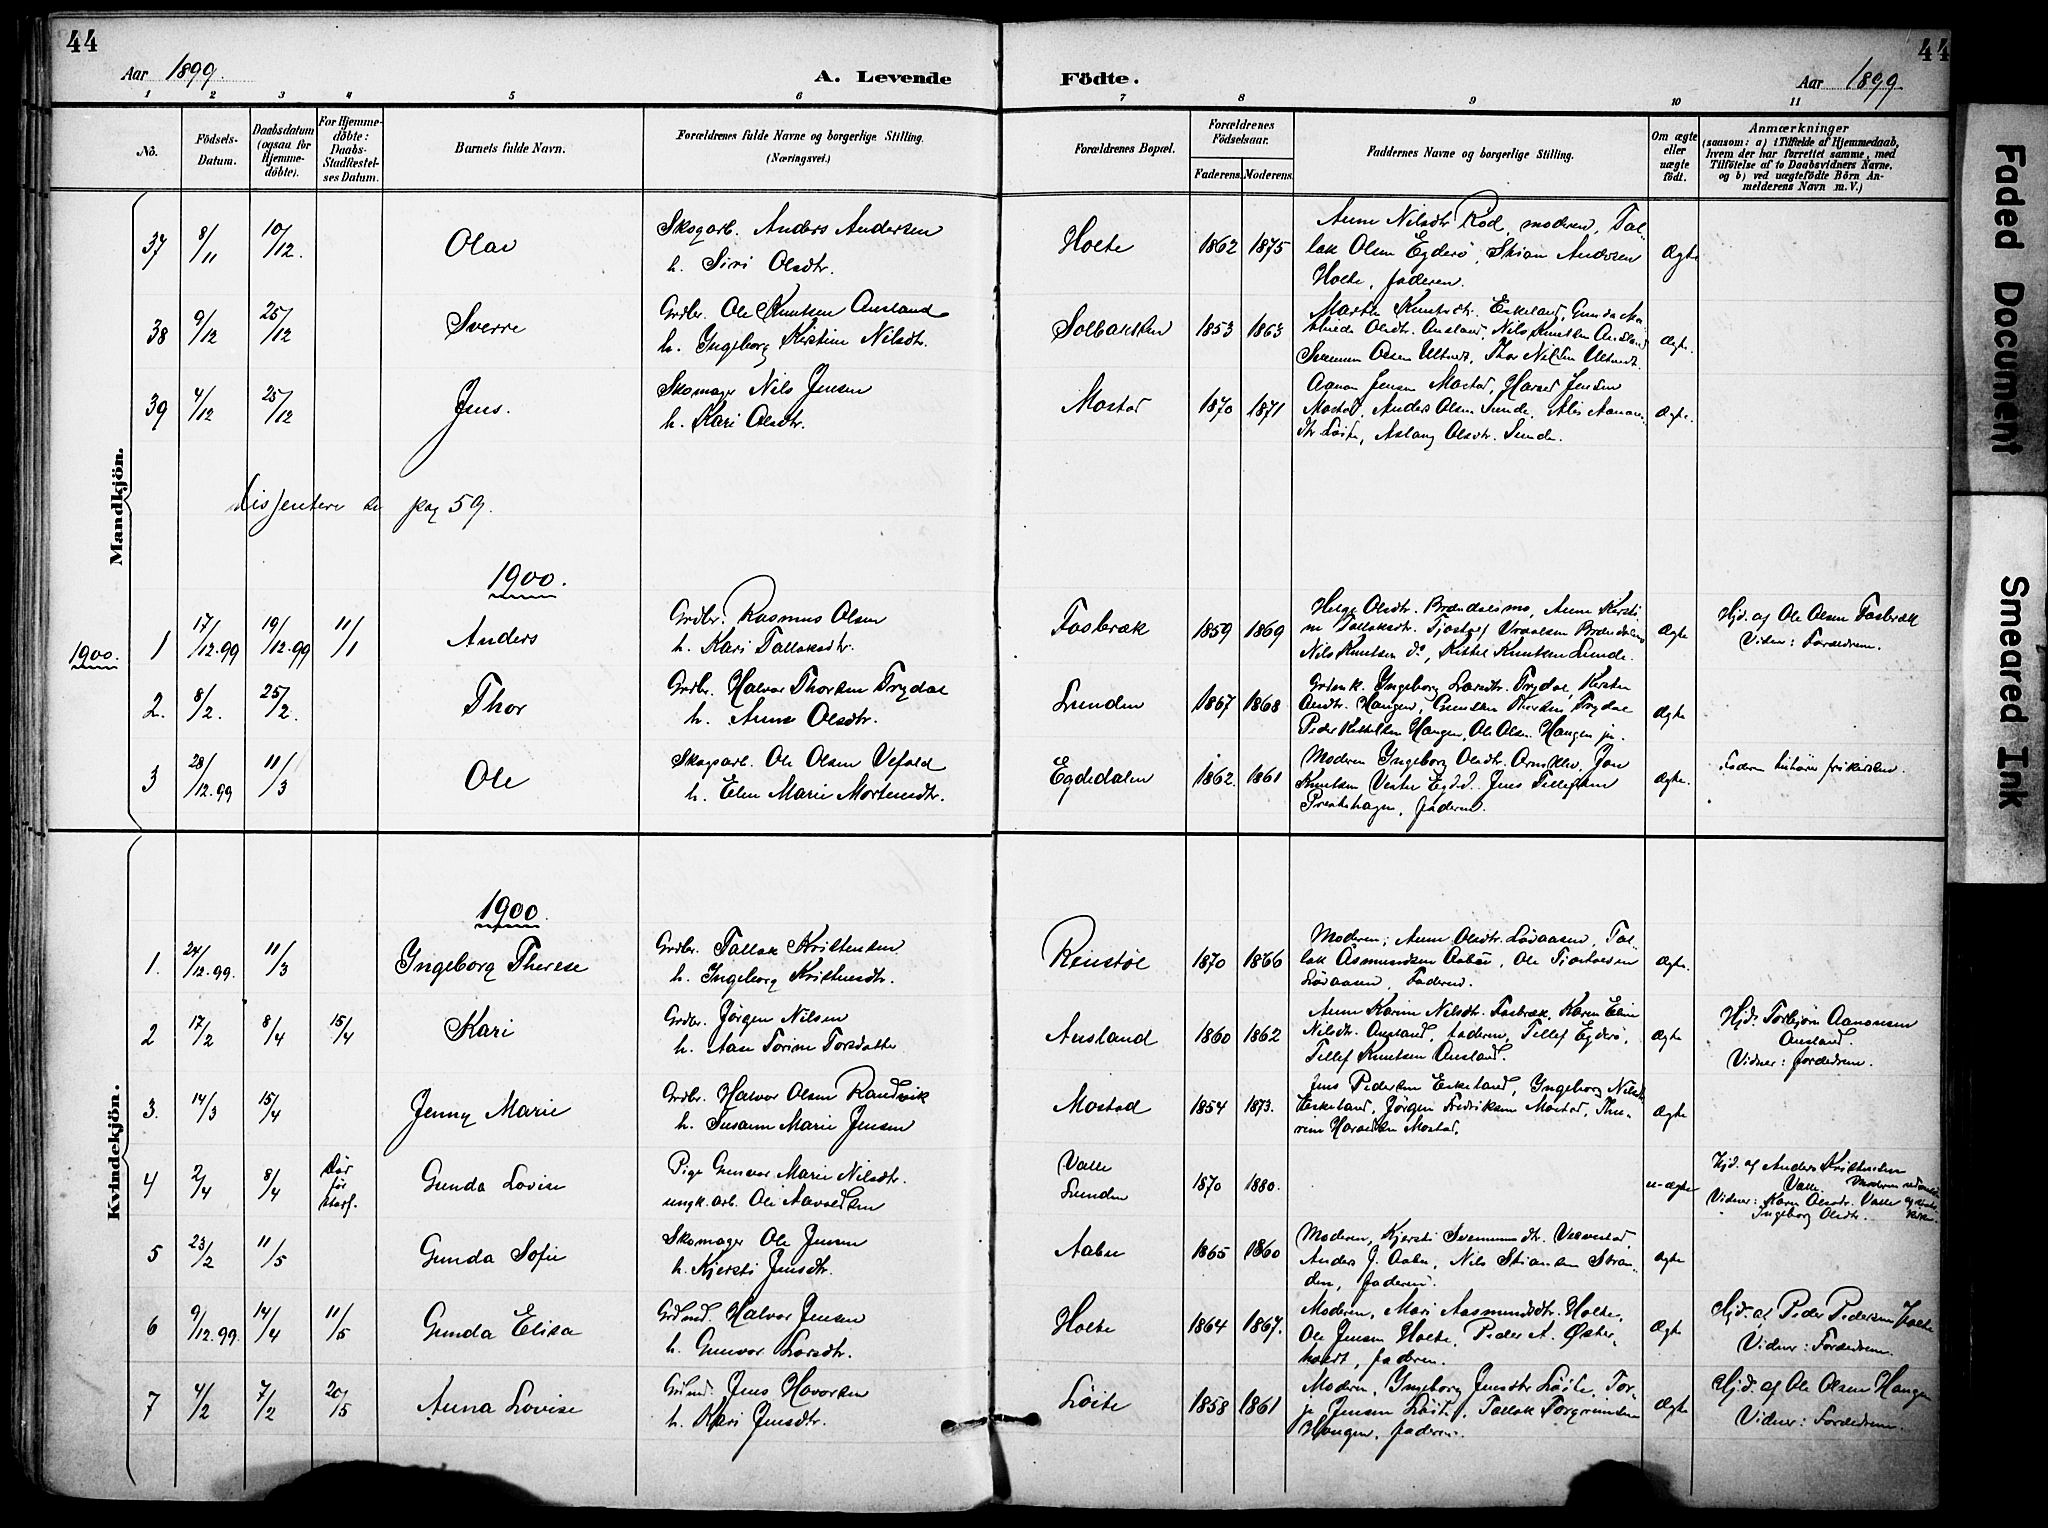 44
44
Aar 1899.
A. Levende
Födte.
Aar 1899
1 2 3 4 5 6 7 8 9 10 11
No.
Födsels-Datum.
Daabsdatum (ogsaa for Hjemmedøbte).
For Hjemmedøbte: Daabs-Stadfæstelses Datum.
Barnets fulde Navn.
Forældrenes fulde Navne og borgerlige Stilling.
(Næringsvei.)
Forældrenes Bopæl.
Forældrenes Födselsaar.
Faderens. Moderens.
Faddernes Navne og borgerlige Stilling.
Om ægte eller uægte födt.
Anmærkninger
(saasom: a) i Tilfælde af Hjemmedaab,
hvem der har forrettet samme, med
Tilföielse af to Daabsvidners Navne,
og b) ved uægtefödte Börn Anmelderens Navn m. V.)
Mandkjön.
37 8/11 10/12. Olav
Skogarb. Anders Andersen
h. Siri Olsdtr.
Holte 1862 1875
Anne Nilsdtr Röd, moderen, Tal-
lak Olsen Egderö, Stian Andersen
Holte, faderen.
Ægte
38 9/12 25/12 Sverre
Grdbr. Ole Knutsen Ausland
h. Ingeborg Kirstine Nilsdtr.
Solbakken 1853 1863
Marthe Knutsdtr. Eskeland, Gunda Ma-
thilde Olsdtr. Ausland, Nils Knutsen Ausland
Ægte.
39 4/12 25/12 Jens.
Skomager Nils Jensen
h. Kari Olsdtr.
Mostad 1870 1871
Aanon Jensen Mostad, Jensen
Mostad, Anders Olsen Sunde,
dtr Löite, Aslaug Olsdtr. Sunde.
Ægte.
pag 59.
1900.
1900.
1 17/12.99 19/12.99 11/1 Anders
Grdbr. Rasmus Olsen
h. Kari Tallaksdtr.
Fosbræk 1859 1869
Helge Olsdtr. Brændalsmo, Anne Kirsti-
ne Tallaksdtr.
Nils Knutsen do, Kittel Knutsen Lunde.
Ægte
Hjd. af Ole Olsen Fosbræk
Vidner: Forældrene.
2. 8/2. 25/2. Thor
Grdbr. Halvor Thorsen Trydal
h. Anne Olsdtr.
Lunden 1867 1868
Ingeborg Larsdtr. Trydal, Kirsten
Olsdtr. Haugen, Thorsen Trydal
Peder Kittelsen Haugen, Ole Olsen Haugen jr.
Ægte
3 28/12.99 11/3 Ole
Skogsarb. Ole Olsen Vefald
h. Elen Marie Mortensdtr.
Egdedalen 1862. 1861
Moderen, Ingeborg Olsdtr. Jon
Knutsen Vester Egdd. Jens Tellefsen
Præstehagen, faderen.
Ægte.
Faderen tilhører frikirken.
Kvindekjön.
1900.
1. 24/12.99. 11/3 Ingeborg Therese
Grdbr. Tallak Kristensen
h. Ingeborg Kristensdtr.
Reinstöl 1870 1866
Moderen, Anne Olsdtr. Lövaasen, Tal-
lak Asmundsen Aabö, Ole
Lövaasen, Faderen.
Ægte.
2 17/2 8/4 15/4 Kari
Grdbr. Jørgen Nilsen
h. Aase Torine Torsdatter
Ausland 1860 1862
Anne Karine Nilsdtr. Fosbræk, Karen Eline
Nilsdtr. Ausland, faderen, Tellef Egderö,
Tellef Knutsen Ausland.
Ægte
Hjd. Torbjörn Aanonsen
Ausland.
Vidner: forældrene.
3. 14/3 15/4 Jenny Marie
Grdbr. Halvor Olsen Randvik
h. Susanne Marie Jensen
Mostad 1854 1873.
Jens Pedersen Eskeland, Ingeborg Nilsdtr
Eskeland, Jörgen Fredriksen Mostad, Tho-
rine Mostad.
Ægte
4 2/4 8/4 Död før
Gunda Lovise
Pige Gunvor Marie Nilsdtr.
ungk. arb. Ole Aavoldsen
Valle
Lunden
1870 1880.
u-ægte
Hjd. af Anders Kristensen
Valle.
Vidner: Karen Olsdtr. Valle og
Ingeborg Olsdtr.
5 23/2 11/5 Gunda Sofie
Skomager Ole Jensen
h. Kjersti Jensdtr.
Aabu 1865 1860
Moderen, Kjersti Svennumsdtr.
Anders J. Aabu, Nils Stiansen Stran-
den, faderen.
Ægte
6 9/12.99. 14/4 11/5 Gunda Elisa
Grdmd. Halvor Jensen
h. Gunvor Larsdtr.
Holte 1864 1867.
Moderen, Mari Aasmundsdtr. Holte,
Ole Jensen Holte, Peder A. Øster-
holdt, faderen.
Ægte
Hjd. af Peder Pedersen Holte
Vidner: Forældrene.
7 4/2 7/2 20/5 Anna Lovise
Grdmd. Jens Havorsen
h. Kari Jensdtr.
Löite 1858 1861
Moderen, Ingeborg Jensdtr Löite, Tor-
je Jensen Löite, Tallak Torgrimsen
Haugen, faderen.
Ægte
Hjd. af Ole Olsen Haugen
Vidner: Forældrene.
Faded Document
Smeared Ink